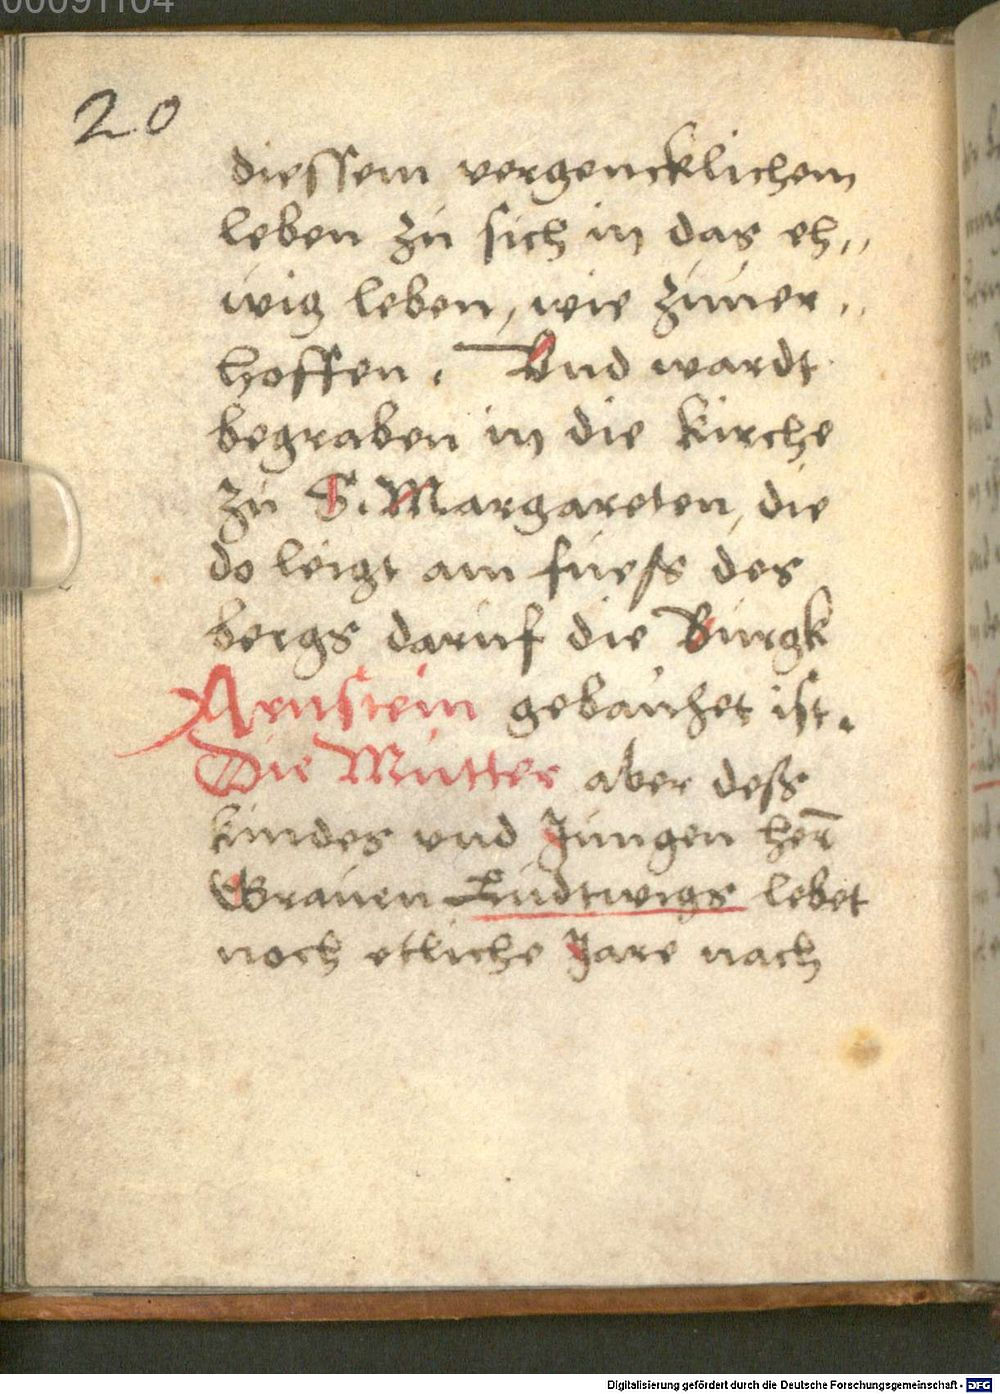 00091104
20
diessem vergencklichem
leben zu sich in das eh,,
wig leben, wie zuuer,,
hoffen. Vnd wardt
begraben in die Kirche
zu S. Margareten, die
do leigt am fuess des
bergs daruf die Burgk
Arnstein gebauhet ist.
Die Mutter aber dess
kindes vnd Jungen her̄
Grauen Ludtwigs lebet
noch etliche Jare nach
Digitalisierung gefördert durch die Deutsche Forschungsgemeinschaft - DFG